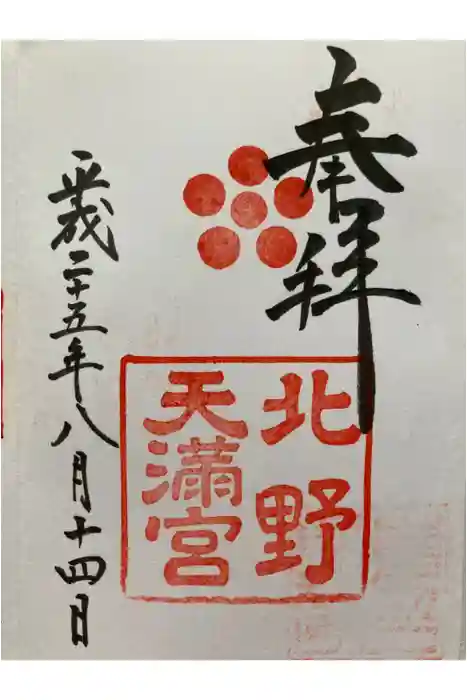 奉拝
北野
天満宮
平成二十五年八月十四日